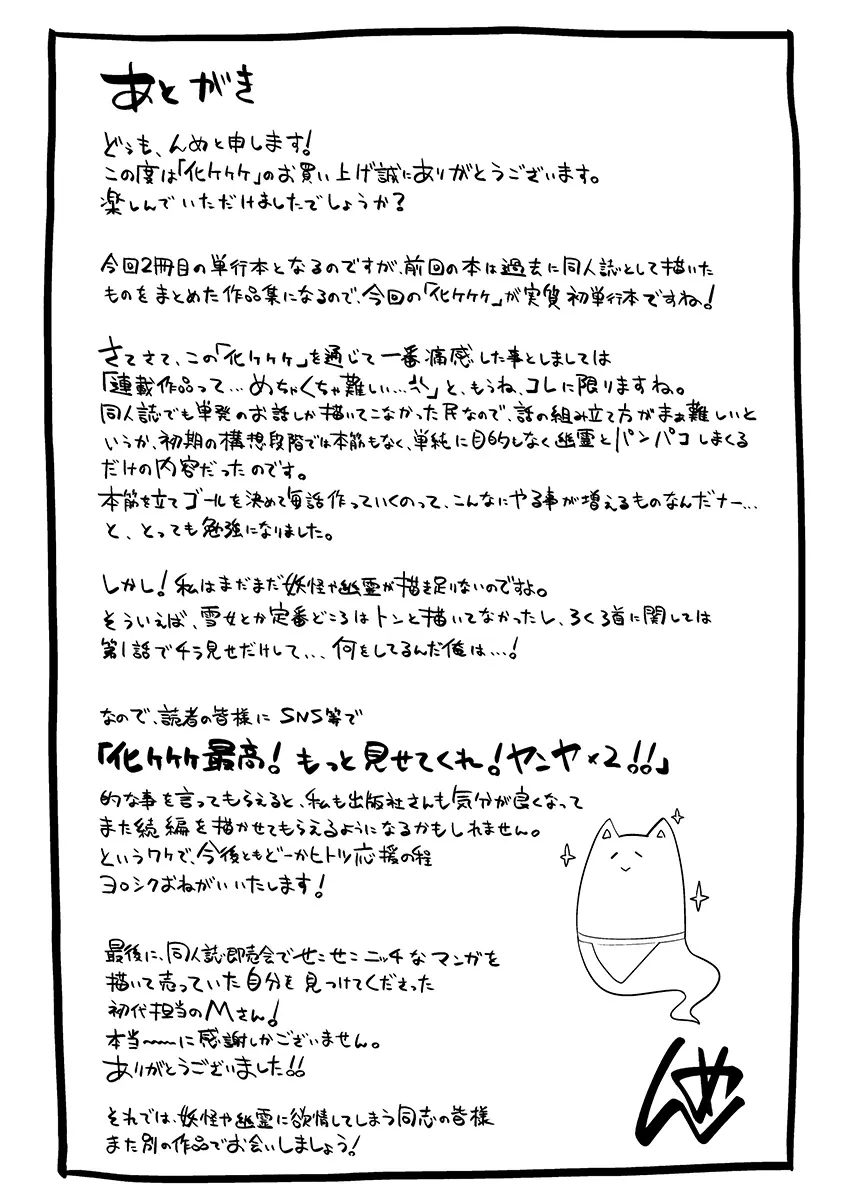 あとがき
どうも、んめと申します!
この度は「化ケケケ」のお買い上げ誠にありがとうございます。
楽しんでいただけましたでしょうか?
今回2冊目の単行本となるのですが、前回の本は過去に同人誌として描いた
ものをまとめた作品集になるので、今回の「化ケケケ」が実質初単行本ですね!
さてさて、この「化ケケケ」を通じて一番痛感した事としましては
「連載作品って…めちゃくちゃ難しい…」と、もうね、コレに限りますね。
同人誌でも単発のお話しか描いてこなかった民なので、話の組み立て方がまぁ難しいと
いうか、初期の構想段階では本筋もなく、単純に目的もなく幽霊とパンパコしまくる
だけの内容だったのです。
本筋を立てゴールを決めて毎話作っていくのって、こんなにやる事が増えるものなんだナー…
と、とっても勉強になりました。
しかし!私はまだまだ妖怪や幽霊が描き足りないのですよ。
そういえば、雪女とか定番どころはトンと描いてなかったし、ろくろ首に関しては
第1話でチラ見せだけして...何をしてるんだ俺は…!
なので、読者の皆様にSNS等で
「化ケケケ最高!もっと見せてくれ!ヤンヤ×2!!」
的な事を言ってもらえると、私も出版社さんも気分が良くなって
また続編を描かせてもらえるようになるかもしれません。
というワケで、今後ともどーかヒトツ応援の程
ヨロシクおねがいいたします!
最後に、同人誌即売会でせこせこニッチなマンガを
描いて売っていた自分を見つけてくださった
初代担当のMさん!
本当〜〜に感謝しかございません。
ありがとうございました!!
それでは、妖怪や幽霊に欲情してしまう同志の皆様
また別の作品でお会いしましょう!
んめ